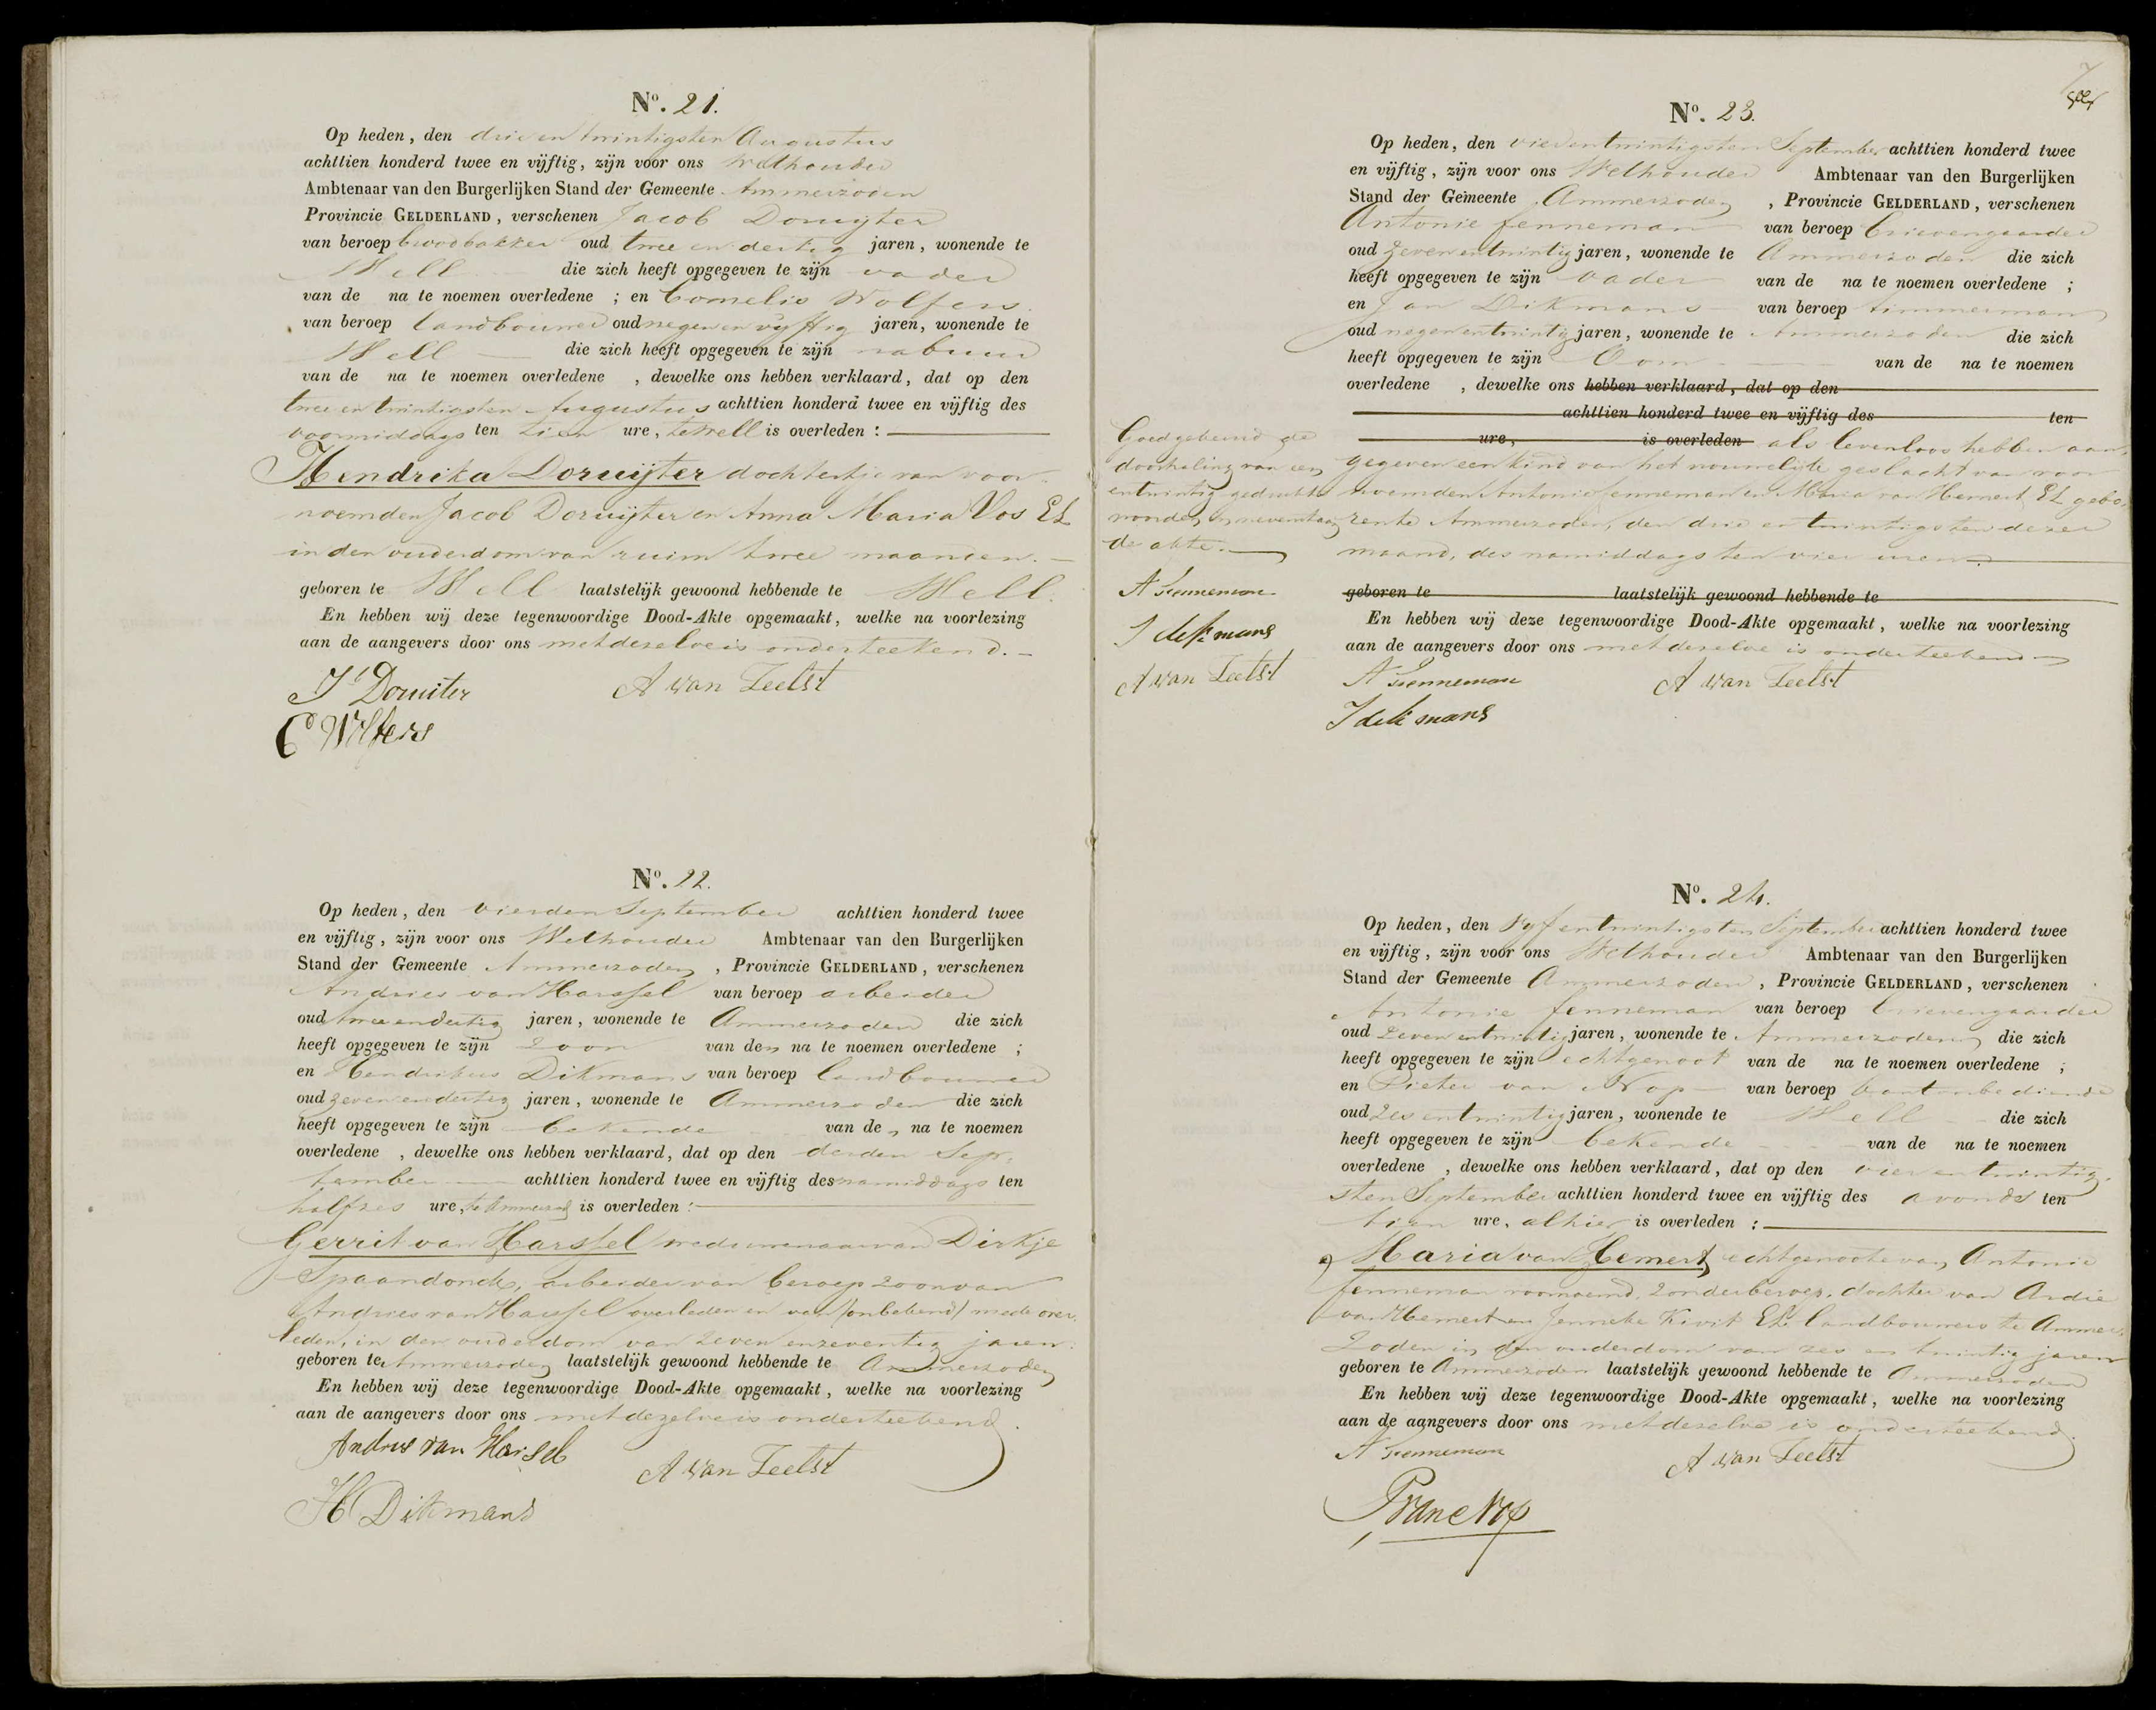 No. 21.
Op heden, den drie en twintigsten Augustus
achttien honderd twee en vijftig, zijn voor ons Wethouder
Ambtenaar van den Burgerlijken Stand der Gemeente Ammerzoden
Provincie GELDERLAND, verschenen Jacob Doruijter
van beroep broodbakker oud twee en dertig jaren, wonende te
Well die zich heeft opgegeven te zijn vader
van de na te noemen overledene ; en Cornelis Wolfers
van beroep landbouwer oud negen en vijftig jaren, wonende te
Well die zich heeft opgegeven te zijn nabuur
van de na te noemen overledene , dewelke ons hebben verklaard, dat op den
twee en twintigsten Augustus achttien honderd twee en vijftig des
voormiddags ten tien ure, te Well is overleden :
Hendrika Doruijter dochtertje van voor-
noemden Jacob Doruijter en Anna Maria Vos EL
in den ouderdom van ruim twee maanden.
geboren te Well laatstelijk gewoond hebbende te Well.
En hebben wij deze tegenwoordige Dood-Akte opgemaakt, welke na voorlezing
aan de aangevers door ons met dezelve is onderteekend.
J Doruiter A van Zeelst
C Wolfers
No. 22.
Op heden, den vierden September achttien honderd twee
en vijftig, zijn voor ons Wethouder Ambtenaar van den Burgerlijken
Stand der Gemeente Ammerzoden , Provincie GELDERLAND, verschenen
Andries van Harssel van beroep arbeider
oud twee en dertig jaren, wonende te Ammerzoden die zich
heeft opgegeven te zijn zoon van den na te noemen overledene ;
en Hendrikus Dikmans van beroep landbouwer
oud zeven en dertig jaren, wonende te Ammerzoden die zich
heeft opgegeven te zijn bekende van de n na te noemen
overledene , dewelke ons hebben verklaard, dat op den derden Sep-
tember achttien honderd twee en vijftig des namiddags ten
half zes ure, te Ammerzod is overleden :
Gerrit van Harssel weduwenaar van Dirkje
Spaandonck, arbeider van beroep zoon van
Andries van Harssel overleden en van (onbekend) mede over-
leden, in den ouderdom van zeven en zeventig jaren.
geboren te Ammerzoden laatstelijk gewoond hebbende te Ammerzoden
En hebben wij deze tegenwoordige Dood-Akte opgemaakt, welke na voorlezing
aan de aangevers door ons met dezelve is onderteekend.
Andries van Harsel A van Zeelst
H Dikmans
7
No. 23.
Op heden, den vier en twintigsten September achttien honderd twee
en vijftig, zijn voor ons Wethouder Ambtenaar van den Burgerlijken
Stand der Gemeente Ammerzoden , Provincie GELDERLAND, verschenen
Antonie Fenneman van beroep brievengaarder
oud zeven en twintig jaren, wonende te Ammerzoden die zich
heeft opgegeven te zijn vader van de na te noemen overledene ;
en Jan Dikmans van beroep timmerman
oud negen en twintig jaren, wonende te Ammerzoden die zich
heeft opgegeven te zijn Oom van de na te noemen
overledene , dewelke ons hebben verklaard, dat op den
achttien honderd twee en vijftig des ten
ure, is overleden als levenloos hebben aan-
gegeven een kind van het vrouwelijk geslacht van voor
noemden Antonie Fenneman en Maria van Hemert EL gebo-
ren te Ammerzoden, den drie en twintigsten dezer
maand, des namiddags ten vier uren.
geboren te laatstelijk gewoond hebbende te
En hebben wij deze tegenwoordige Dood-Akte opgemaakt, welke na voorlezing
aan de aangevers door ons met dezelve is onderteekend
A Fenneman A van Zeelst
J dikmans
Goedgekeurd de
doorhaling van een
en twintig gedrukte
woorden in nevenstaan
de akte.
A Fenneman
J dikmans
A van Zeelst
No. 24.
Op heden, den vijf en twintigsten September achttien honderd twee
en vijftig, zijn voor ons Wethouder Ambtenaar van den Burgerlijken
Stand der Gemeente Ammerzoden , Provincie GELDERLAND, verschenen
Antonie Fenneman van beroep brievengaarder
oud zeven en twintig jaren, wonende te Ammerzoden die zich
heeft opgegeven te zijn echtgenoot van de na te noemen overledene ;
en Pieter van Nop van beroep
oud zes en twintig jaren, wonende te Well die zich
heeft opgegeven te zijn bekende van de na te noemen
overledene , dewelke ons hebben verklaard, dat op den vier en twintig-
sten September achttien honderd twee en vijftig des avonds ten
tien ure, alhier is overleden :
Maria van Hemert echtgenoote van Antonie
Fenneman voornoemd, zonder beroep, dochter van Ardie
van Hemert en Jenneke Kivit EL landbouwers te Ammer-
zoden in den ouderdom van zes en twintig jaren
geboren te Ammerzoden laatstelijk gewoond hebbende te Ammerzoden
En hebben wij deze tegenwoordige Dood-Akte opgemaakt, welke na voorlezing
aan de aangevers door ons met dezelve is onderteekend.
A Fenneman A van Zeelst
P van Nop